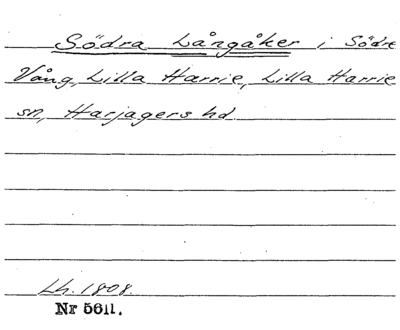 Södra Långåker i Södra
Vång, Lilla Harrie, Lilla Harrie
sn, Harjagers hd
Lh. 1808.
Nr 5611.